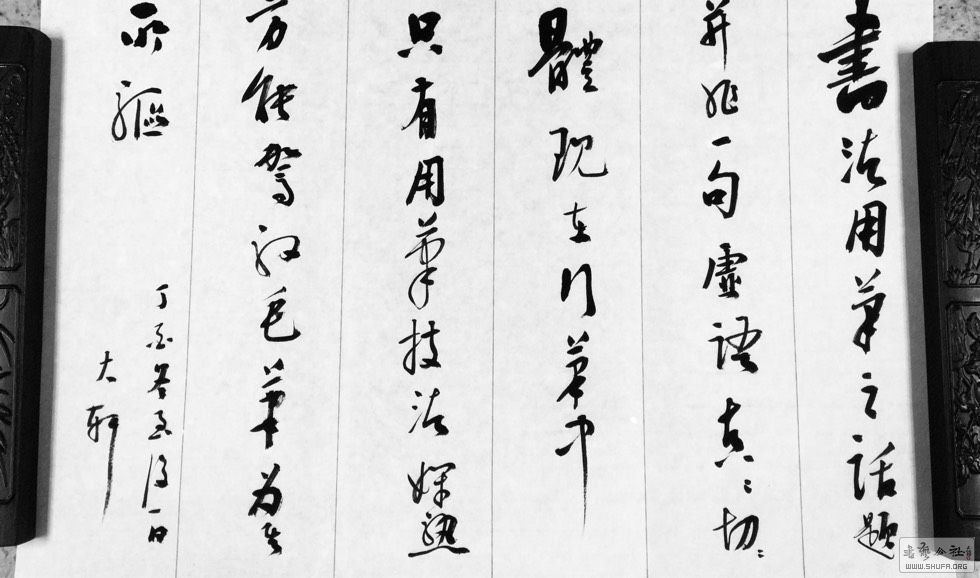 書法用筆之話題
并非一句虛語真〻切〻
體現在行筆中
只有用筆技法嫻熟
方能駕馭毛筆为其
所驅
丁酉冬至後一日
大軒
書藝公社
WWW.SHUFA.ORG